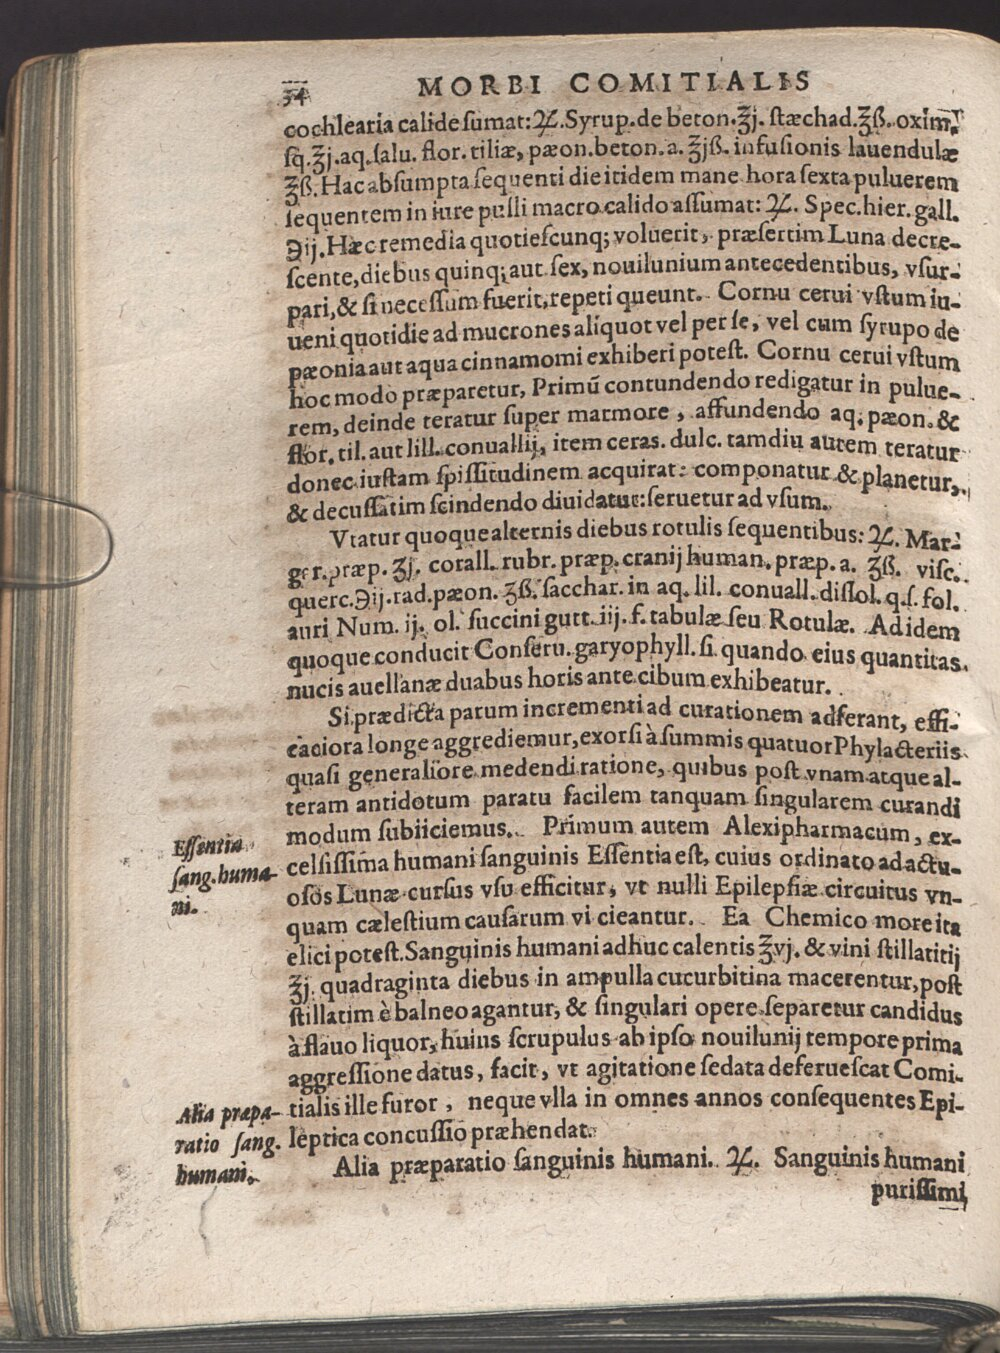 34 MORBI COMITIALIS
cochlearia calide ſumat: ℞. Syrup. de beton. ℥j. ſtæchad. ℥ß. oxim.
ſq. ℥j. aq. ſalu. flor. tiliæ, pæon. beton. a. ℥jß. infuſionis lauendulæ
℥ß. Hac abſumpta ſequenti die itidem mane hora ſexta puluerem
ſequentem in iure pulli macro calido aſſumat: ℞. Spec. hier. gall.
℈ij. Hæc remedia quotieſcunq; voluerit, præſertim Luna decre-
ſcente, diebus quinq; aut ſex, nouilunium antecedentibus, vſur-
pari, & ſi neceſſum fuerit, repeti queunt. Cornu cerui vſtum iu-
ueni quotidie ad mucrones aliquot vel per ſe, vel cum ſyrupo de
pæonia aut aqua cinnamomi exhiberi poteſt. Cornu cerui vſtum
hoc modo præparetur, Primũ contundendo redigatur in pulue-
rem, deinde teratur ſuper marmore, affundendo aq. pæon. &
flor. til. aut lill. conuallij, item ceras. dulc. tamdiu autem teratur
donec iuſtam ſpiſſitudinem acquirat: componatur & planetur,
& decuſſatim ſcindendo diuidatur: ſeruetur ad vſum.
Vtatur quoque alternis diebus rotulis ſequentibus: ℞. Mar-
gar. præp. ʒj. corall. rubr. præp. cranij human. præp. a. ʒß. viſc.
querc. ℈ij. rad. pæon. ʒß. ſacchar. in aq. lil. conuall. diſſol. q. ſ. fol.
auri Num. ij. ol. ſuccini gutt. iij. f. tabulæ ſeu Rotulæ. Ad idem
quoque conducit Conſeru. garyophyll. ſi quando eius quantitas
nucis auellanæ duabus horis ante cibum exhibeatur.
Si prædicta parum incrementi ad curationem adferant, effi-
caciora longe aggrediemur, exorſi à ſummis quatuor Phylacteriis
quaſi generaliore medendi ratione, quibus poſt vnam atque al-
teram antidotum paratu facilem tanquam ſingularem curandi
modum ſubiiciemus. Primum autem Alexipharmacum, ex-
Eſſentia
ſang. huma-
ni.
celſiſſima humani ſanguinis Eſſentia eſt, cuius ordinato ad actu-
oſos Lunæ curſus vſu efficitur, vt nulli Epilepſiæ circuitus vn-
quam cæleſtium cauſarum vi cieantur. Ea Chemico more ita
elici poteſt. Sanguinis humani adhuc calentis ℥vj. & vini ſtillatitij
℥j. quadraginta diebus in ampulla cucurbitina macerentur, poſt
ſtillatim è balneo agantur, & ſingulari opere ſeparetur candidus
à flauo liquor, huius ſcrupulus ab ipſo nouilunij tempore prima
aggreſſione datus, facit, vt agitatione ſedata deferueſcat Comi-
tialis ille furor, neque vlla in omnes annos conſequentes Epi-
leptica concuſſio præhendat.
Alia præpa-
ratio ſang.
humani.
Alia præparatio ſanguinis humani. ℞. Sanguinis humani
puriſſimi